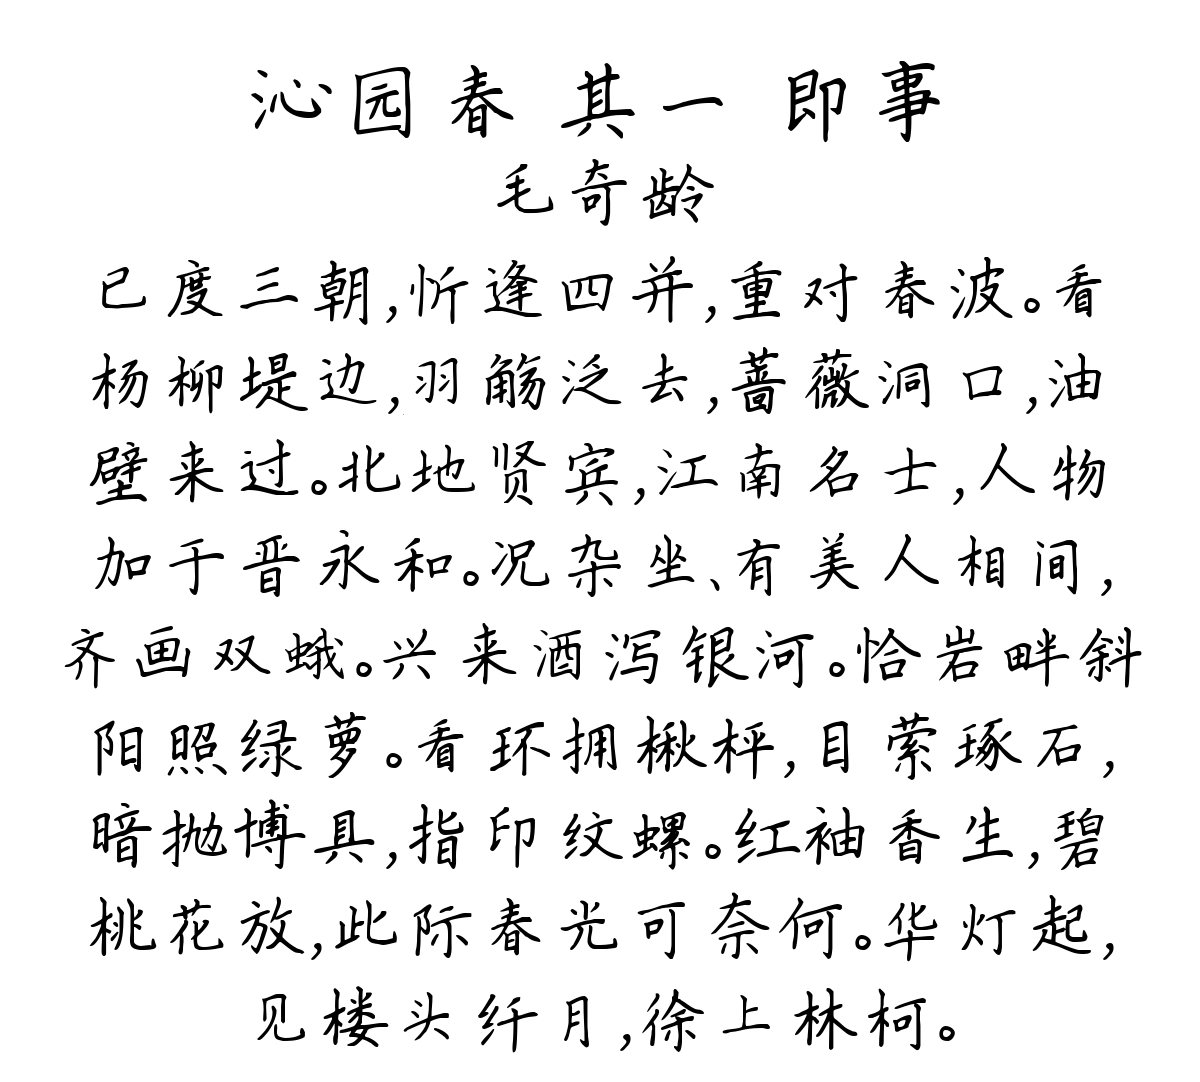 沁园春 其一 即事
毛奇龄
已度三朝,忻逢四并,重对春波。看
杨柳堤边,羽觞泛去,蔷薇洞口,油
壁来过。北地贤宾,江南名士,人物
加于晋永和。况杂坐、有美人相间,
齐画双蛾。兴来酒泻银河。恰岩畔斜
阳照绿萝。看环拥楸枰,目萦琢石,
暗抛博具,指印纹螺。红袖香生,碧
桃花放,此际春光可奈何。华灯起,
见楼头纤月,徐上林柯。